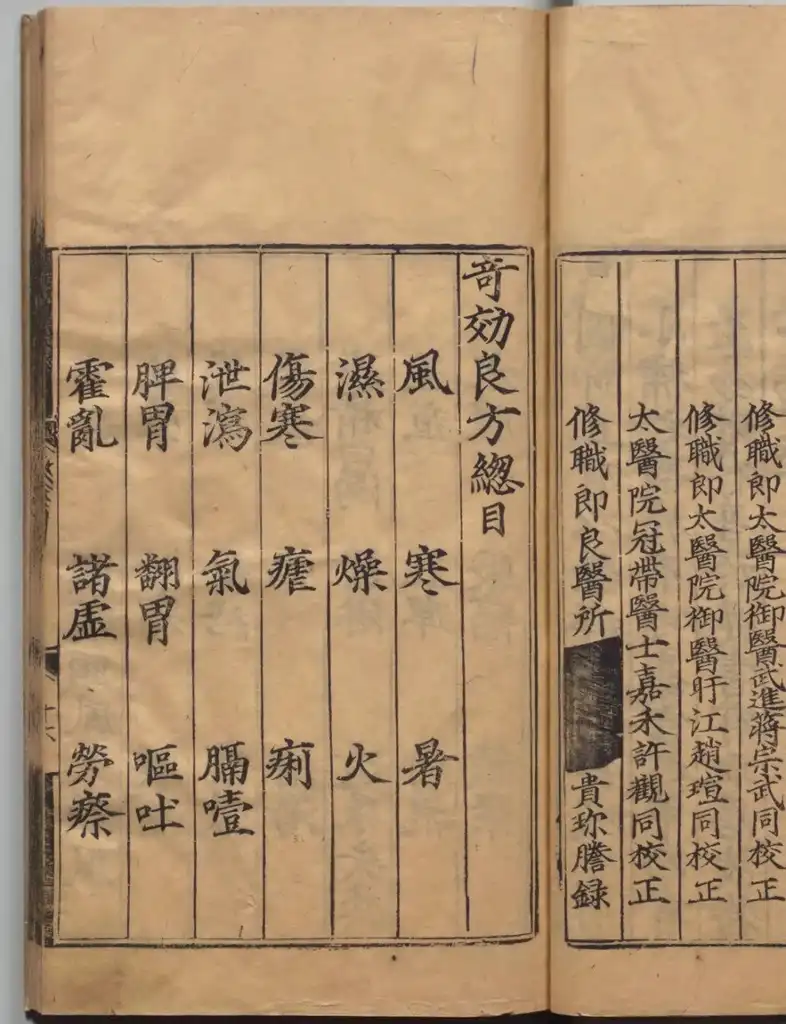 修職郎太醫院御醫武進蔣宗武同校正
修職郎太醫院御醫盱江趙瑄同校正
太醫院冠帶醫士嘉禾許觀同校正
修職郎良醫所 貴珎謄録
奇効良方總目
風 寒 暑
濕 燥 火
傷寒 瘧 痢
泄瀉 氣 膈噎
脾胃 翻胃 嘔吐
霍亂 諸虛 勞瘵